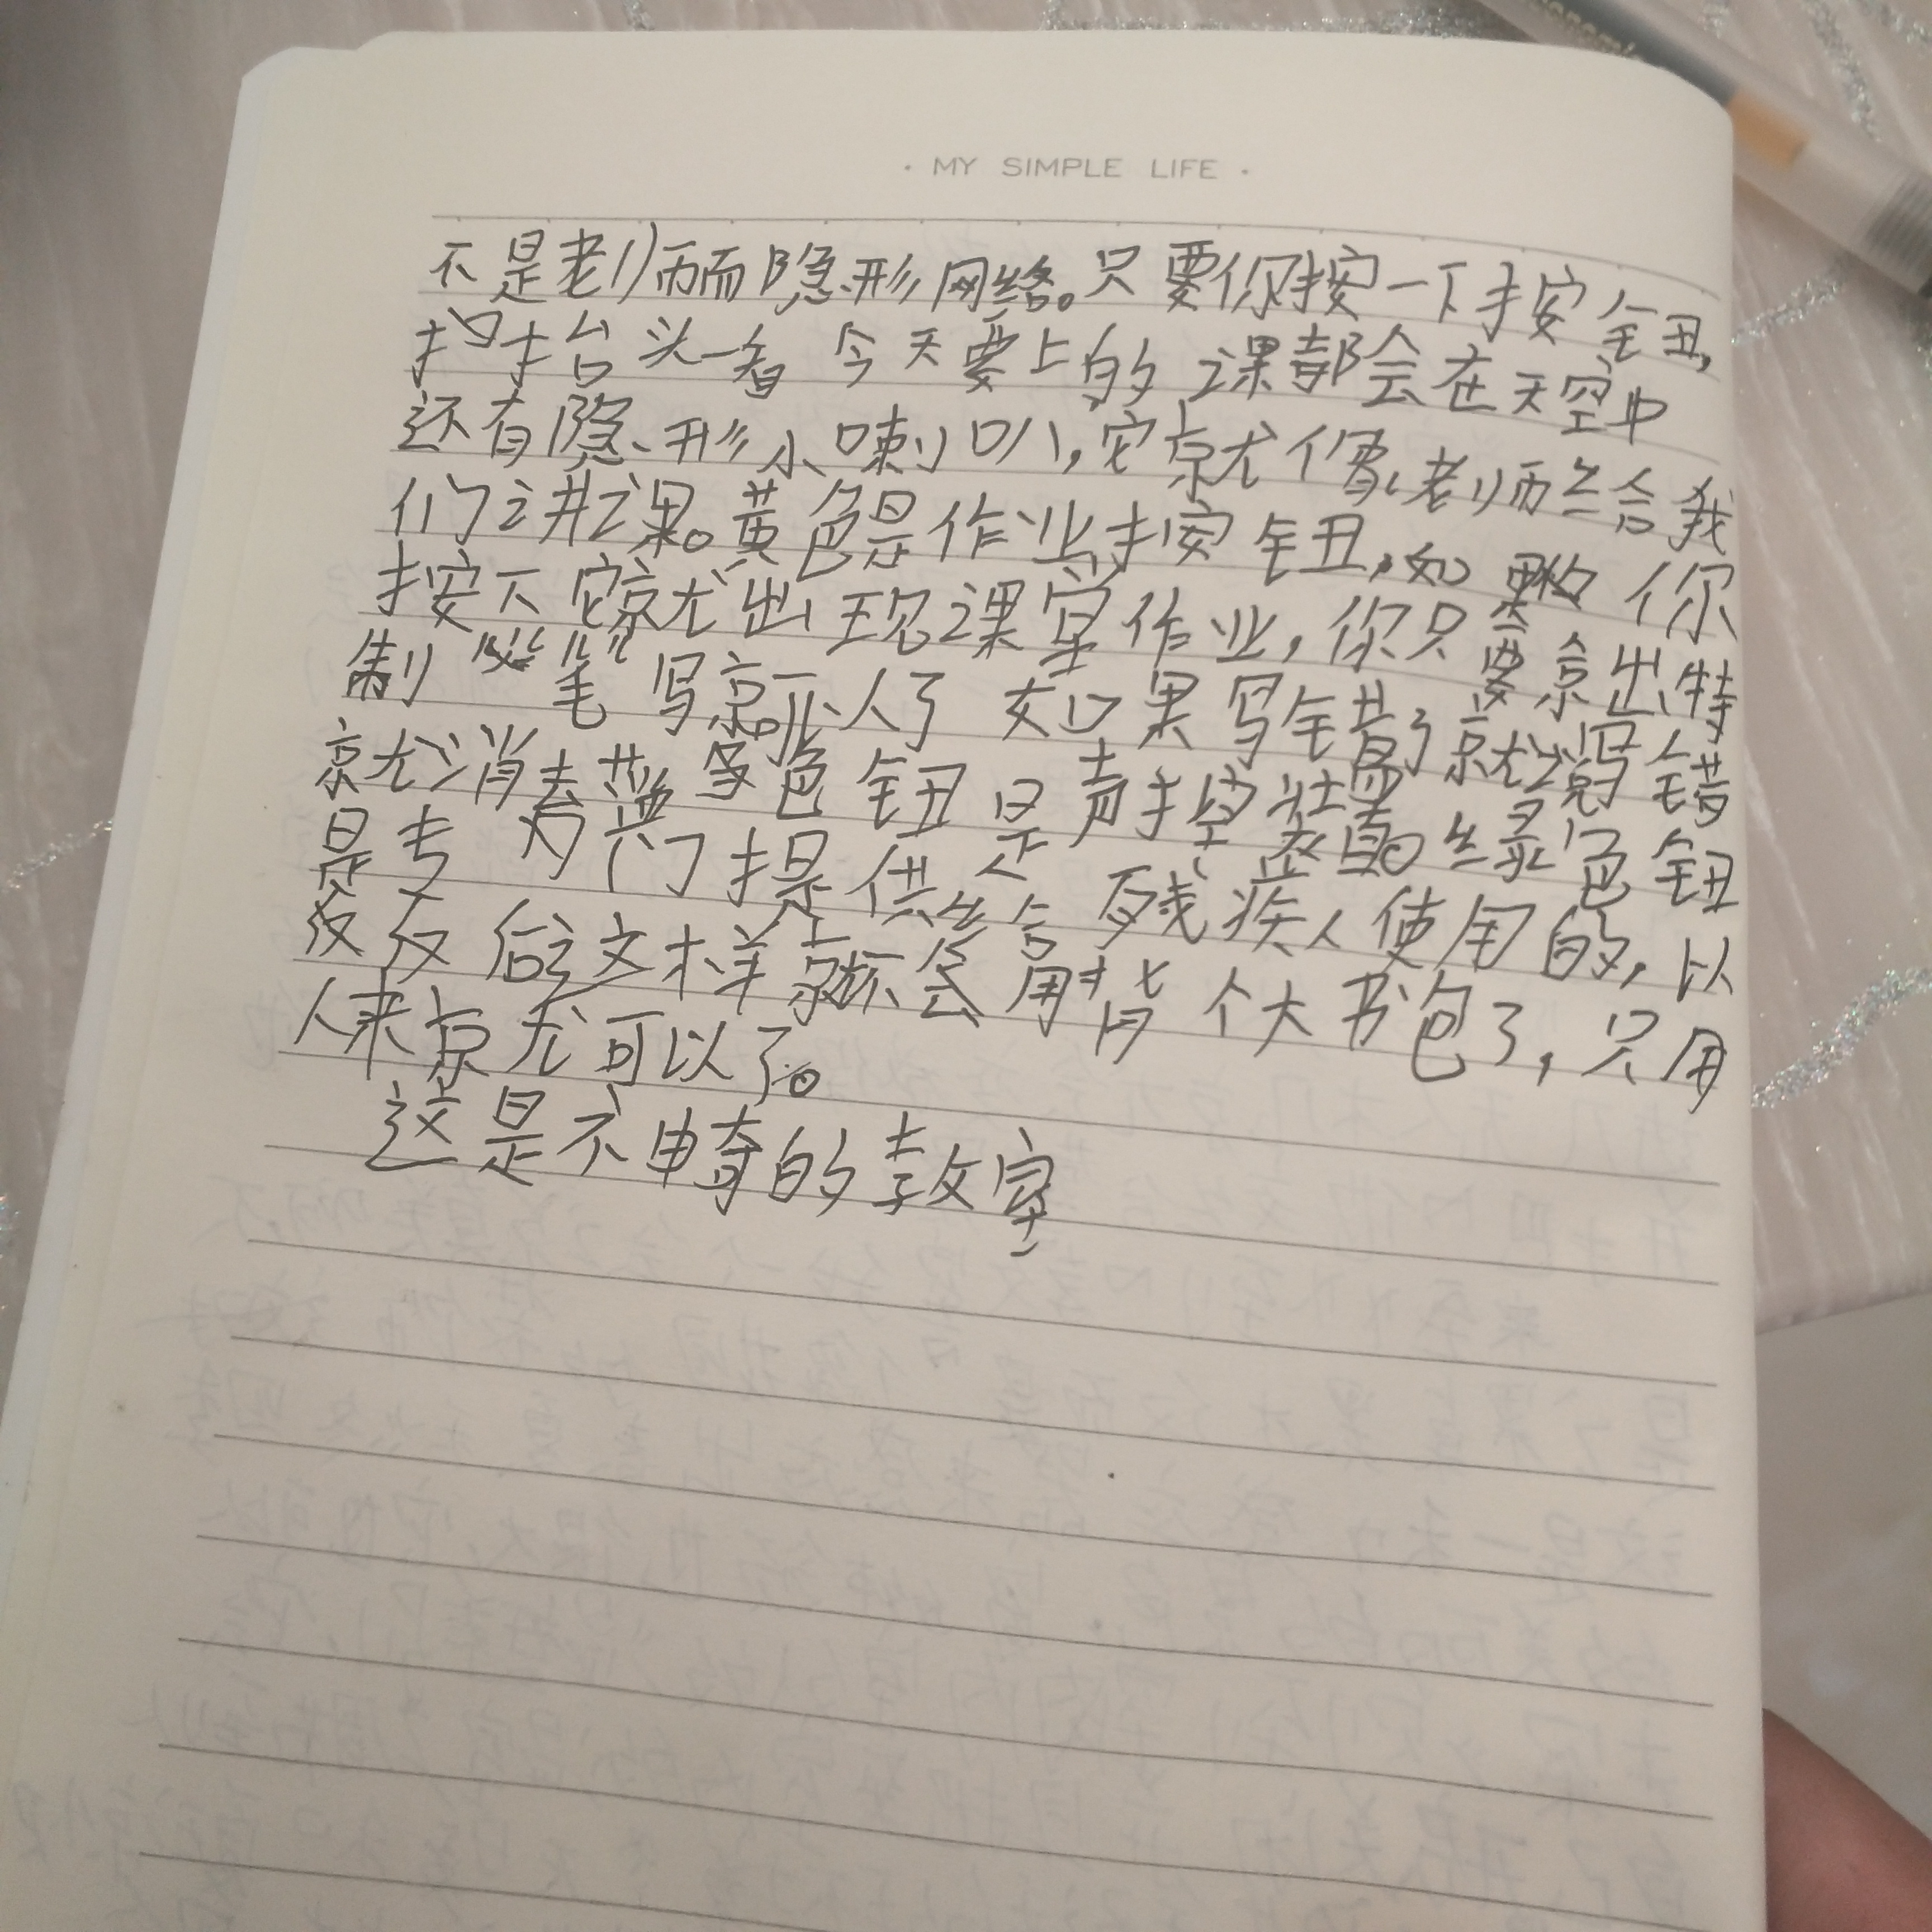 · MY SIMPLE LIFE ·
不是老师而隐形网络。只要你按一下按钮,
抬头一看今天要上的课都会在天空中
还有隐形小喇叭,它就像老师给我
们讲课。黄色是作业按钮,如果你
按下它就出现课堂作业,你只要拿出特
制“笔”写就可以了如果写错了就说写错
就消去紫色钮是声控装置绿色钮
是专门提供给残疾人使用的,以
后这样就不会用背个大书包了,只用
人来就可以了。
这是个神奇的教室